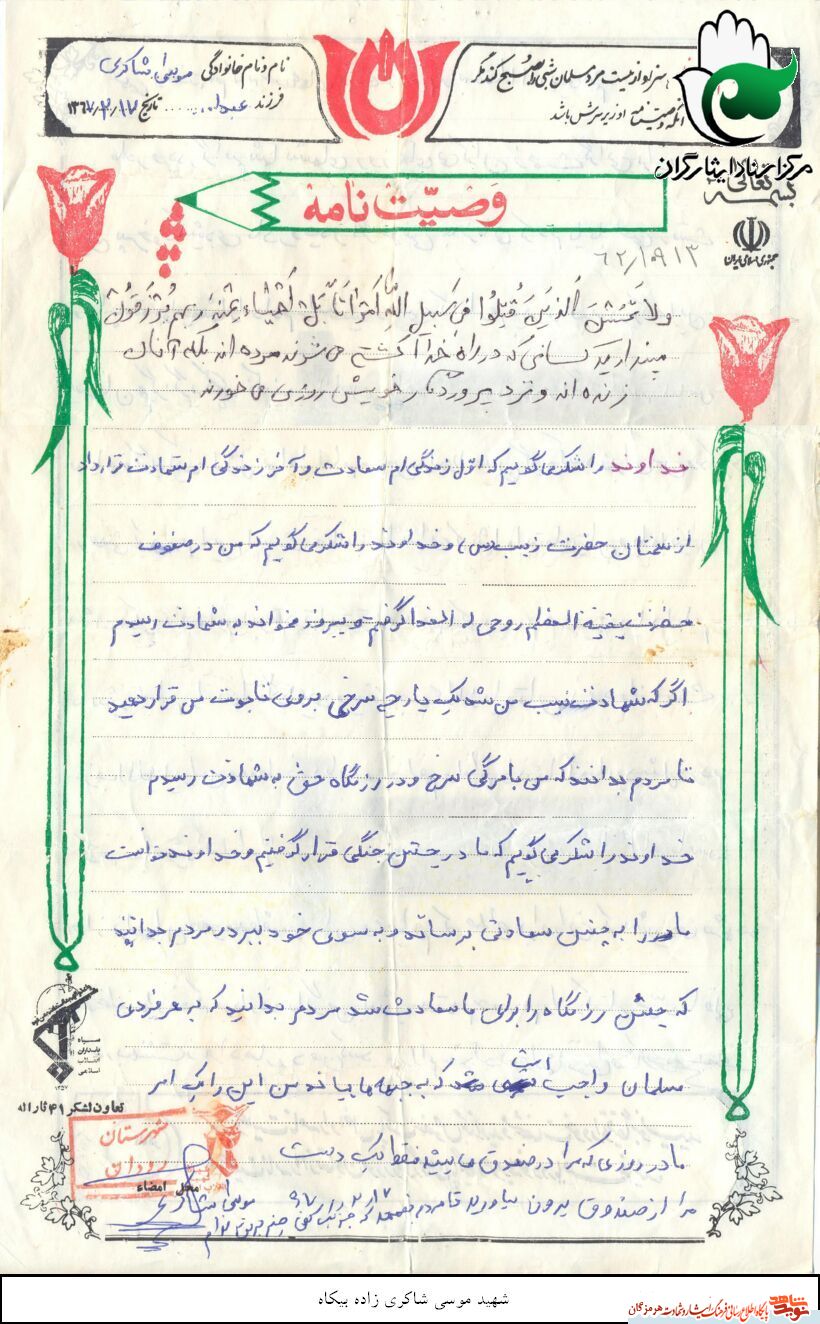 سزاوار نیست مرد مسلمان شبی را صبح کند مگر
آنکه وصیتنامه او زیر سرش باشد
نام و نام خانوادگی موسی شاکری
فرزند عبداله تاریخ ۱۳۶۷/۲/۱۷
مرکز اسناد ایثارگران
بسمه تعالی
وصیّت نامه
جمهوری اسلامی ایران
ولا تحسبن الذین قُتِلُوا فی سبیل اللّه امواتا بل احیاء عند ربهم یرزقون
مپندارید کسانی که در راه خدا کشته می شوند مرده اند بلکه آنان
زنده اند و نزد پروردگار خویش روزی می خورند
خداوند را شکر می گویم که اوّل زندگی ام سعادت و آخر زندگی ام شهادت قرار داد
از سخنان حضرت زینب (س) و خداوند را شکر می گویم که من در صفوف
حضرت بقیة العظم روحی له الفدا گرفتم و به شهادت رسیدم
اگر که شهادت نسیب من شد یک پارچه سرخی بروی تابوت من قرار دهید
تا مردم بدانند که من با مرگی سرخ و در رزمگاه حق به شهادت رسیدم
خداوند را شکر می گویم که ما در چنین جنگی قرار گرفتیم و خداوند خواست
ما را به چنین سعادتی برساند و به سوی خود ببرد مردم بدانند
که چنین رزمگاه را برای ما سعادت شد مردم بدانید که به هر فردی
مسلمان واجب است که به جبهه ها بیاند من این را یک امر
مادر روزی که مرا در صندوق می بینید فقط یک دست
مرا از صندوق بیرون بیاورید تا مردم
۶۷/۲/۱۷
موسی شاکری
سپاه
پاسداران
انقلاب
اسلامی
۱۳۵۷
تعاون لشکر ۴۱ ثاراله
شهرستان
رودان
محل امضاء
شهید موسی شاکری زاده بیکاه
نوید شاهد
پایگاه اطلاع رسانی فرهنگ ایثار و شهادت هرمزگان